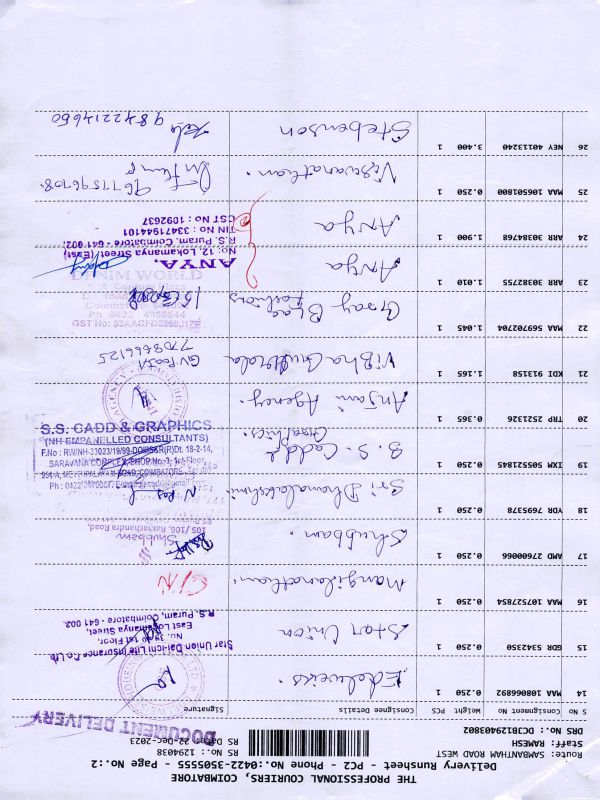 THE PROFESSIONAL COURIERS, COIMBATORE
Delivery Runsheet - PC2 - Phone No:0422-3505555 - Page No.:2
Route: SAMBANTHAM ROAD WEST
Staff: RAMESH
DRS No.: DCJB129403802
RS No.: 1294038
RS Date: 22-Dec-2023
DOCUMENT DELIVERY
S No Consignment No Weight PCS Consignee Details Signature
14 MAA 108066892 0.250 1 Edelweiss.
15 GDR 5342350 0.250 1 Star Union
Star Union Dai-ichi Life Insurance Co.Ltd
No. 39, 1st Floor,
East Lokamanya Street,
R.S. Puram, Coimbatore - 641 002.
16 MAA 107527854 0.250 1 Mangilanathan. C/N
17 AMD 27600066 0.250 1 Shubham.
Shubham
105 /106, Ramachandra Road,
18 YDR 7695378 0.250 1 Sri Dhanalakshmi
19 IXM 505521845 0.250 1 S. S. Cadd & Graphics.
S.S. CADD & GRAPHICS
(NH EMPANELLED CONSULTANTS)
20 TRP 2521326 0.365 1 Anjani Agency.
21 KDI 913158 1.165 1 Vibha 7708666125
22 MAA 596940704 1.045 1 Gray Blaa Fashions
DENIM WORLD
Ph : 0422 4958544
23 ARR 30382755 1.010 1 Anya
ANYA,
No: 12, Lokamanya Street (East)
R.S. Puram, Coimbatore - 641 002.
TIN No : 33471944101
CST No : 1092637
24 ARR 30384768 1.900 1 Anya
25 MAA 106501800 0.250 1 Viswanathan. 9677596708.
26 NEY 40113240 3.400 1 Stebenson 9842214660